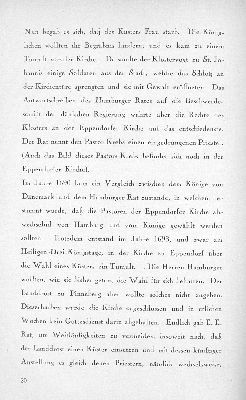 Nun begab es sich, daß des Küsters Frau starb. Die Königlichen
wollten ihr Begräbnis hindern, und es kam zu einem
Tumult vor der Kirche. Da sandte der Klostervogt zu St. Johannis
einige Soldaten aus der Stadt, welche das Schloß an
der Kirchentüre sprengten und sie mit Gewalt eröffneten. Das
Antwortschreiben des Hamburger Rates auf die Beschwerdeschrift
der dänischen Regierung wahrte aber die Rechte des
Klosters an der Eppendorfer Kirche auf das entschiedenste.
Der Rat nennt den Pastor Krebs einen eingedrungenen Priester.
(Auch das Bild dieses Pastors Krebs befindet sich noch in der
Eppendorfer Kirche).
Im Jahre 1690 kam ein Vergleich zwischen dem Könige von
Dänemark und dem Hamburger Rat zustande, in welchem bestimmt
wurde, daß die Pastoren der Eppendorfer Kirche abwechselnd
von Hamburg und vom Könige gewählt werden
sollten. Trotzdem entstand im Jahre 1693, und zwar am
Heiligen-Drei-Königstage, in der Kirche zu Eppendorf über
die Wahl eines Küsters, ein Tumult. Die Herren Hamburger
wollten, wie sie bisher getan, die Wahl für sich behalten. Der
Landdrost zu Pinneberg aber wollte solches nicht zugeben.
Dieserhalben wurde die Kirche zugeschlossen und in etlichen
Wochen kein Gottesdienst darin abgehalten. Endlich gab E. E.
Rat, um Weitläufigkeiten zu vermeiden, insoweit nach, daß
der Landdrost einen Küster einsetzen und mit dessen künftiger
Anstellung es gleich denen Priestern, nämlich wechselsweise,
20